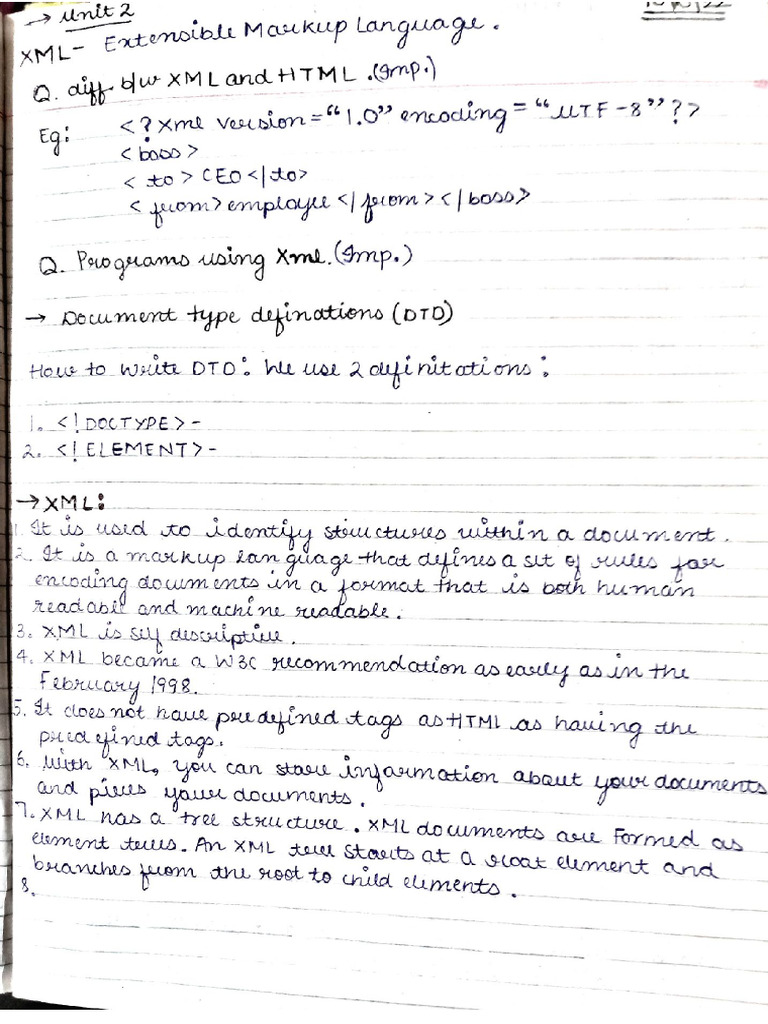 → Unit 2
XML- Extensible Markup Language.
Q. diff b/w XML and HTML. (Imp.)
Eg: <?xml version="1.0" encoding="UTF-8"?>
<boss>
<to>CEO</to>
<from>employee</from></boss>
Q. Programs using Xml. (Imp.)
→ Document type definations (DTD)
How to write DTD: We use 2 definitations:
1. <!DOCTYPE>-
2. <!ELEMENT>-
→ XML:
1. It is used to identify structures within a document.
2. It is a markup language that defines a set of rules for
encoding documents in a format that is both human
readable and machine readable.
3. XML is self descriptive.
4. XML became a W3C recommendation as early as in the
February 1998.
5. It does not have predefined tags as HTML as having the
predefined tags.
6. With XML, you can store information about your documents
and pieces your documents.
7. XML has a tree structure. XML documents are Formed as
element trees. An XML tree starts at a root element and
branches from the root to child elements.
8.